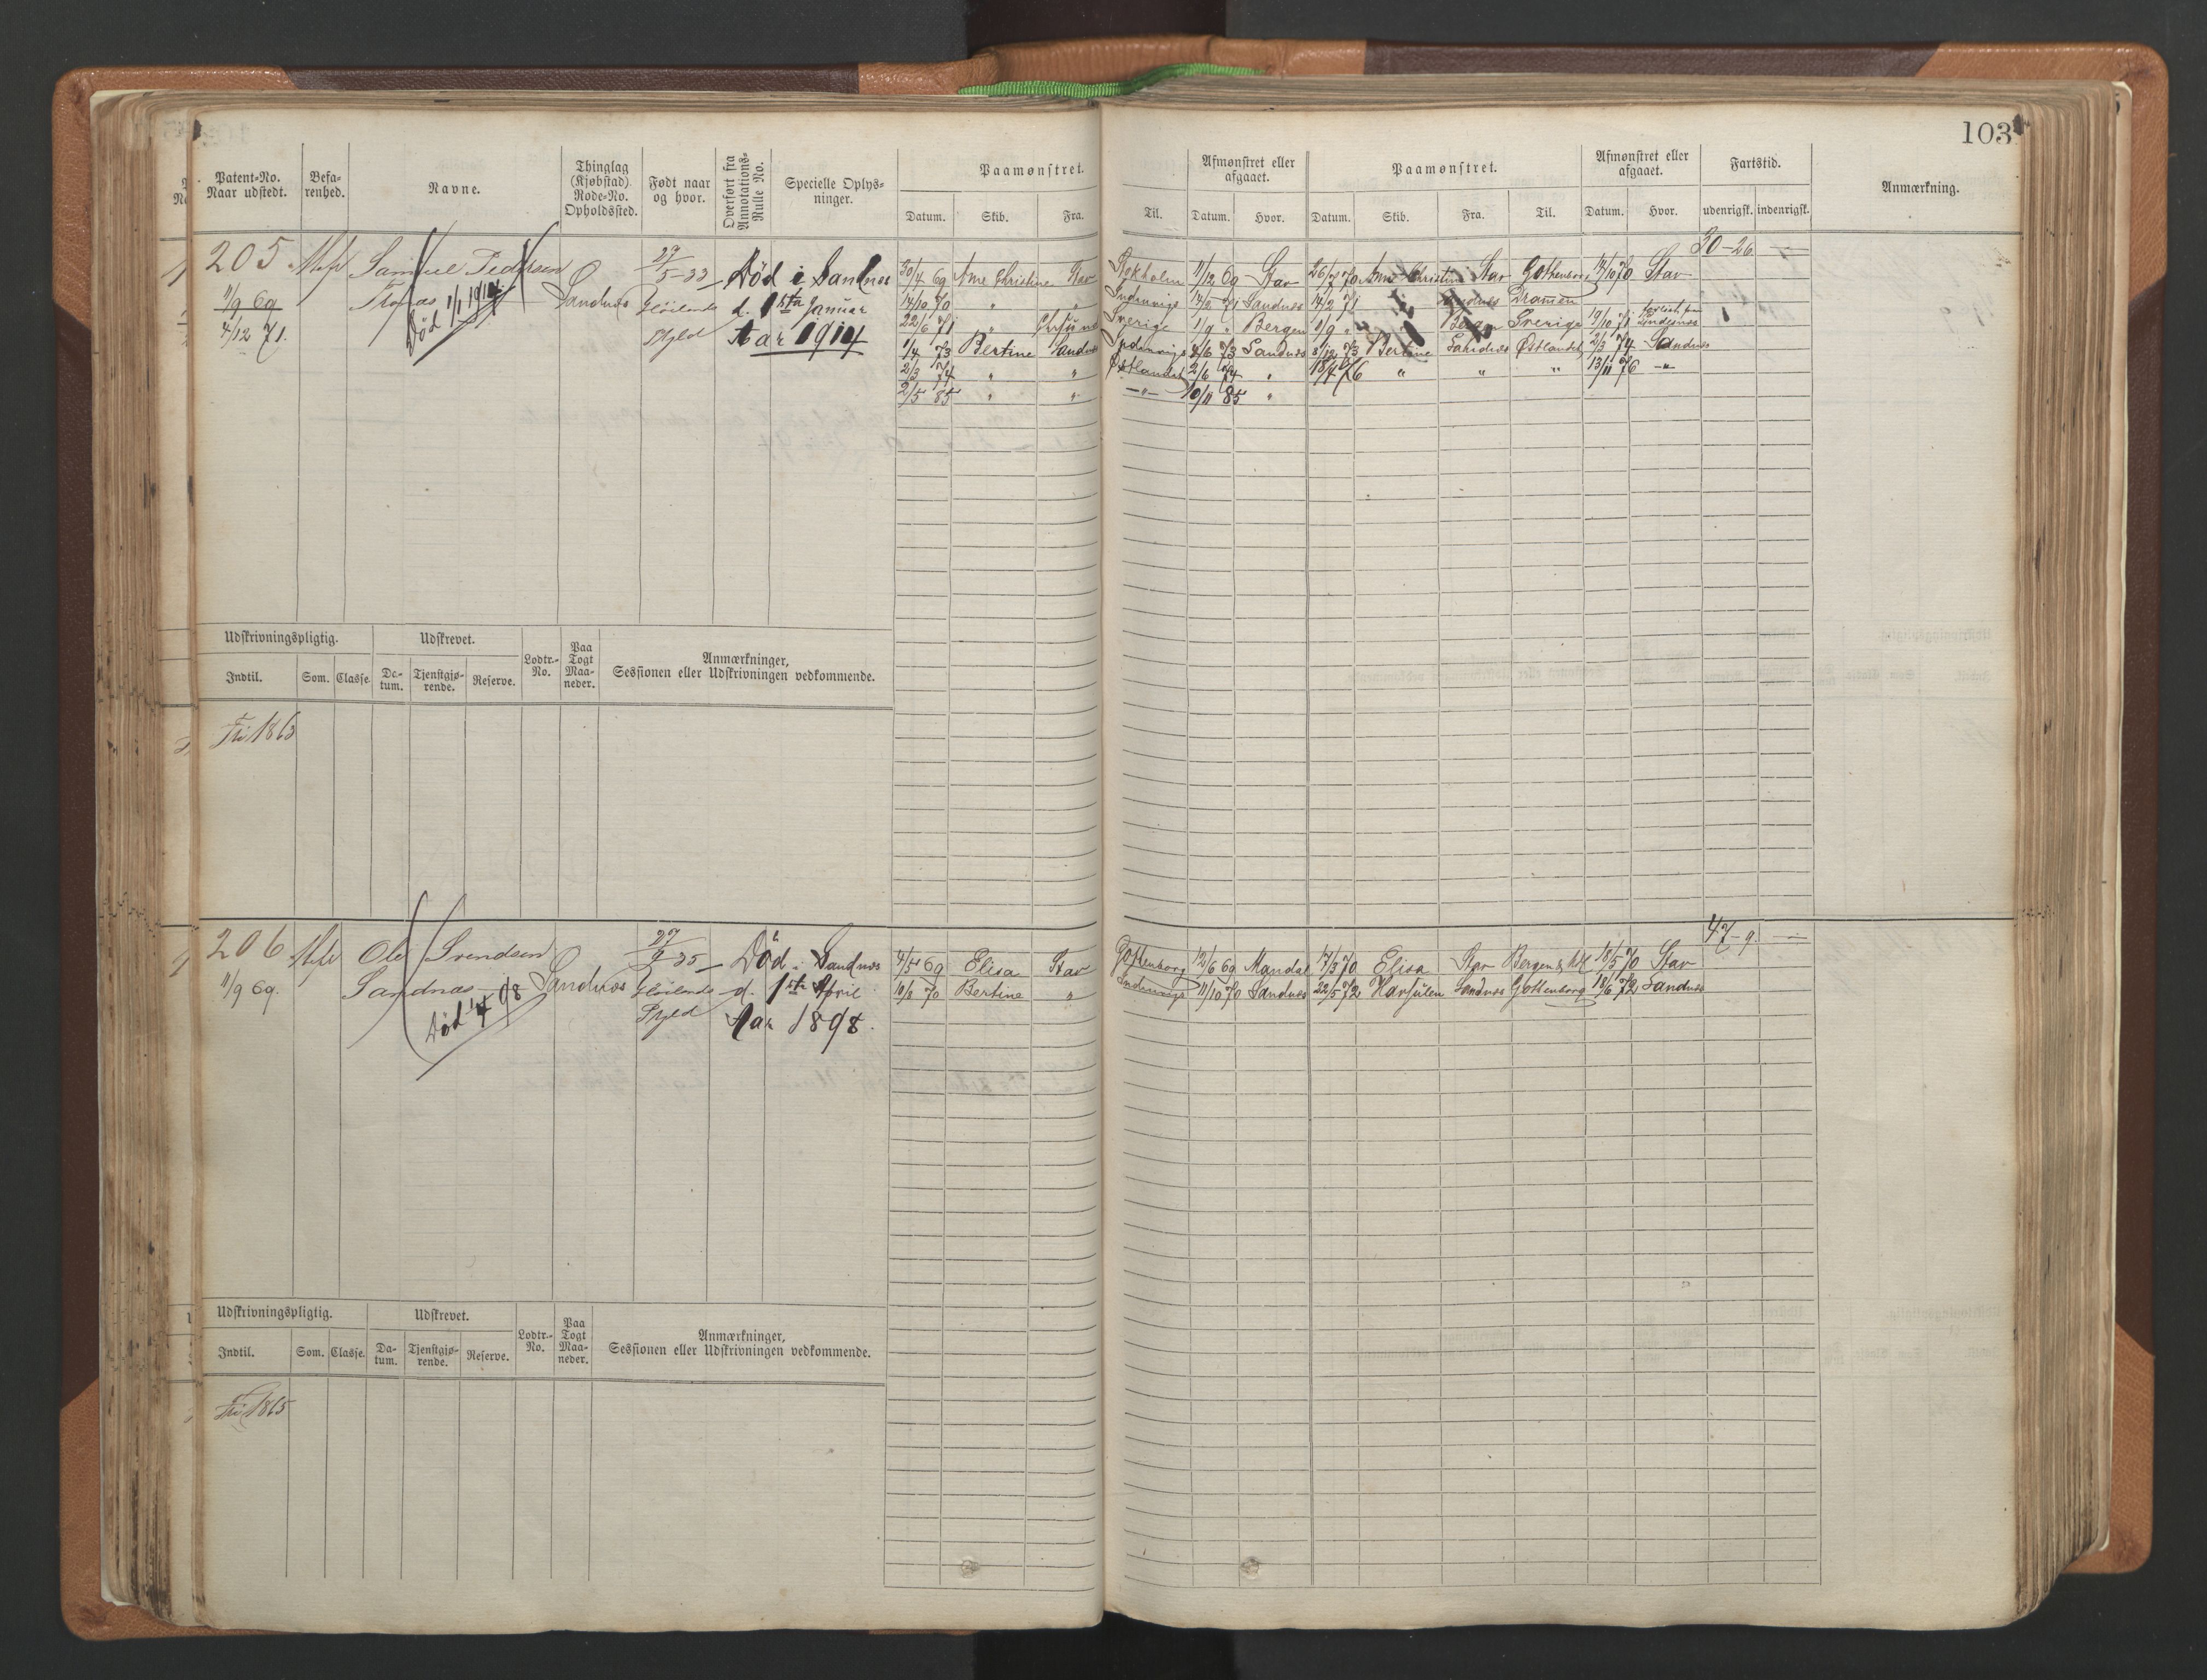 103
Patent-No. Naar udstedt.
Befa-renhed.
Navne.
Thinglag (Kjøbstad) Rode-No. Opholdssted.
Født naar og hvor.
Overført fra Annotations-Rulle No.
Specielle Oplys-ninger.
Paamønstret.
Datum. Skib. Fra. Til.
Afmønstret eller afgaaet.
Datum. Hvor.
Paamønstret.
Datum. Skib. Fra. Til.
Afmønstret eller afgaaet.
Datum. Hvor.
Fartstid.
udenrigsk. indenrigsk.
Anmærkning.
30-26
205 Samuel Pedersen 27/5-33 Død i Sandnes
11/9 69 Sandnes
Død 1/1 1914
d. 1ste Januar
4/12 71.
Aar 1914
30/4 69 Ane Christine Stav Stokholm 11/12 69 Stav 70 Ane Christine Stav Gothenborg 14/10 70 Stav
14/10 70 " " Indenrigs 14/2 71 Sandnes 14/2 71 Sandnes Dramen
22/6 71 " Sverige 1/9 " Bergen 1/9 " Bergen Sverige 19/10 71
1/4 73 Bertine Sandnes Indenrigs 4/6 73 Sandnes 8/12 73 Bertine Sandnes Østlandet 2/3 74 Sandnes
2/3 74 " " Østlandet 2/6 74 " 18/4 76 " " " 13/11 76 -"-
2/5 85 " " -"- 10/11 85 "
Udskrivningspligtig.
Udskrevet.
Lodtr.-No.
Paa Togt Maa-neder.
Anmærkninger, Sessionen eller Udskrivningen vedkommende.
Indtil. Som. Classe. Da-tum. Tjenstgjø-rende. Reserve.
Fri 1863
47-9.
206 Ole Svendsen 27/9-35 Død i Sandnes
11/9 69. Sandnes Sandnes d. 1ste April
Død 1/4 98
Aar 1898.
4/5 69 Elisa Stav Gothenborg 12/6 69 Mandal 17/3 70 Elisa Stav Bergen 18/5 70 Stav
10/8 70 Bertine " Indenrigs 11/10 70 Sandnes 22/5 72 Havsulen Sandnes Gothenborg 18/6 72 Sandnes
Udskrivningspligtig.
Udskrevet.
Lodtr.-No.
Paa Togt Maa-neder.
Anmærkninger, Sessionen eller Udskrivningen vedkommende.
Indtil. Som. Classe. Da-tum. Tjenstgjø-rende. Reserve.
Fri 1865